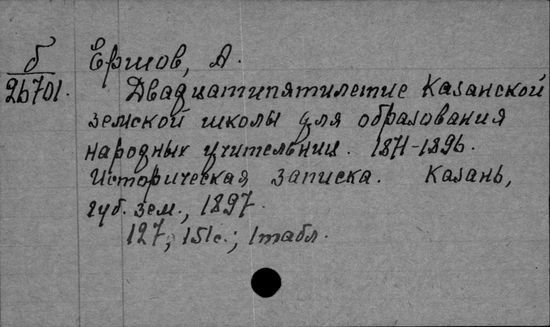 б Ершов, А.
26701. Двадцатипятилетие Казанской
земской школы для образования
народных учительниц. 1871-1896.
Историческая записка. Казань,
губ. зем., 1897.
127, 151с.; 1табл.